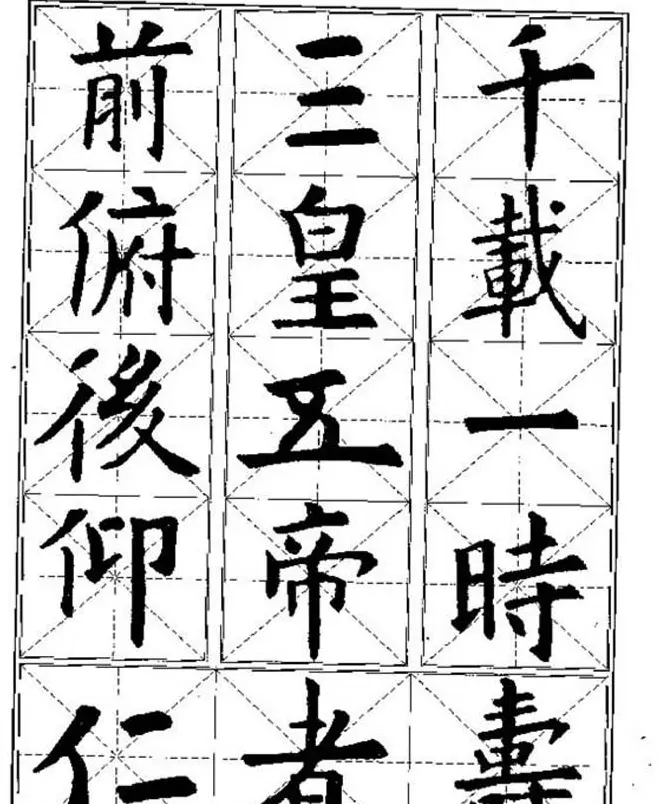 千載一時
三皇五帝
前俯後仰
仁者壽